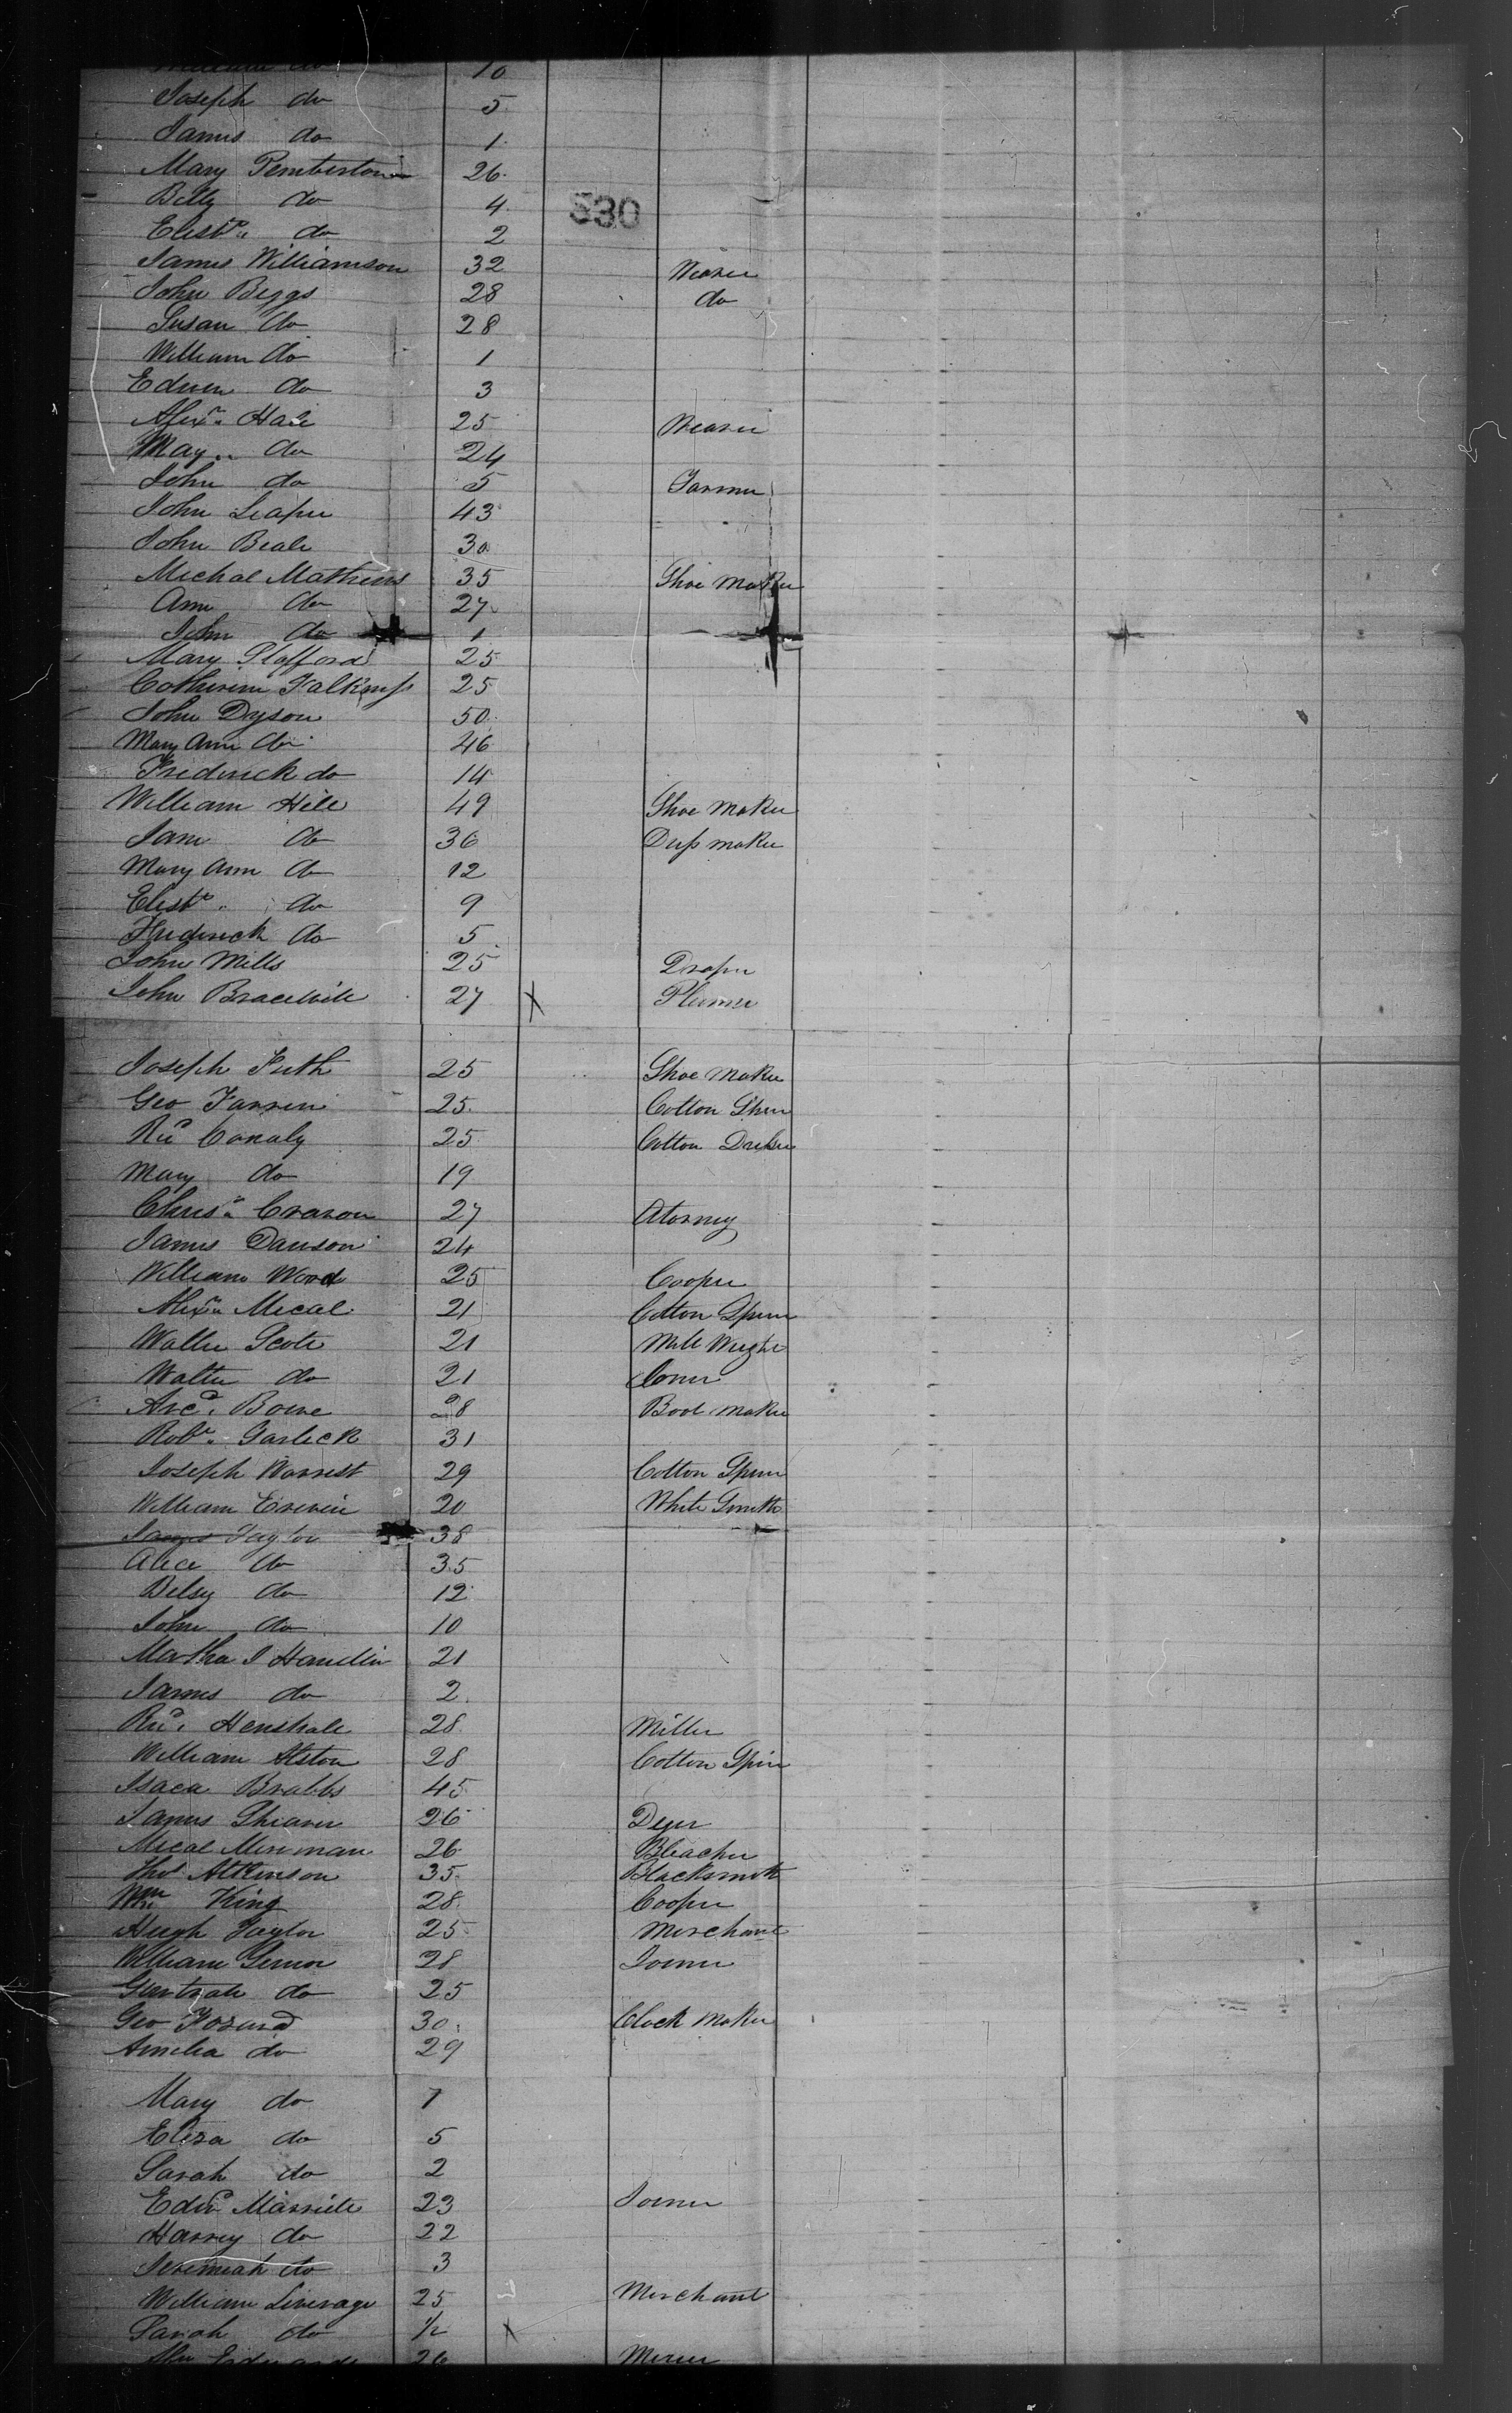 William do 10
Joseph do 5
James do 1
Mary Pemberton 26
Betty do 4
530
Elisth. do 2
James Williamson 32 Weaver
John Beggs 28 do
Susan do 28
William do 1
Edwin do 3
Alexr. Hare 25 Weaver
May.. do 24
John do 5 Farmer
John Leaper 43
John Beale 30
Michal Mathews 35 Shoe Maker
Ann do 27
John do 1
Mary Stafford 25
Catherine 25
John Dyson 50
Mary Ann do 46
Frederick do 14
William Hill 49 Shoe Maker
Jane do 36 Dress maker
Mary Ann do 12
Elisth. do 9
Frederick do 5
John Mills 25 Draper
John 27 X
Joseph Frith 25 Shoe Maker
Geo 25 Cotton
Ricd Conaly 25 Cotton
Mary do 19
Chrisr. Craron 27 Atorney
James Dawson 24
William Wood 25 Cooper
Alexr. Mecal 21 Cotton Spiner
Walter Scote 21 Mill Wright
Walter do 21
Arcd. Bowe 28 Boot Maker
Robt. Garlick 31
Joseph Worrest 29 Cotton Spiner
William 20 White Smith
James Taylor 38
Alice do 35
Betsy do 12
John do 10
Martha J Hamdlin 21
James do 2
Ricd. Henshale 28 Miller
William Alston 28 Cotton Spin
Isaca Brabbs 45
James Shearer 26 Dyer
Mical Merriman 26 Bleacher
Thos Atkinson 35 Blacksmith
Wm King 28 Cooper
Hugh Taylor 25 Merchant
William 28 Joiner
do 25
Geo 30 Clock Maker
Amelia do 29
Mary do 7
Eliza do 5
Sarah do 2
Edwd Marriete 23 Joiner
Harrey do 22
Jeremiah do 3
William Liverage 25 Merchant
Sarah do 1/2 X
Edwards 26